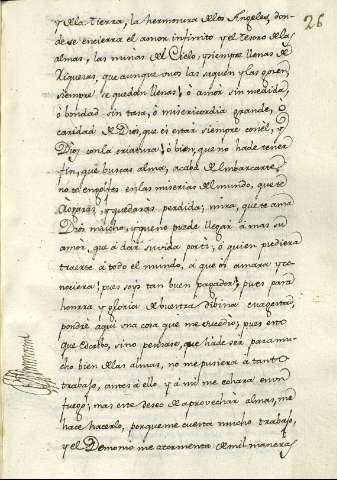 26
y de la tierra, la hermosura de los Angeles, don-
de se encierra el amor infinito y el tesoro de las
almas, las minas del Cielo, y siempre llenas de
riquezas, que aunque unos las siguen y las gozen,
siempre se quedan llenas; ó amor sin medida,
ó bondad sin tasa, ó misericordia grande, ó
caridad de Dios, que es estar siempre con el, y
Dios con la criatura; ó bien, que no ha de tener
fin, que buscas alma, acaba de embarcarte,
no te engolfes en las miserias del mundo, que te
aogaras, y quedaras perdida; mira, que te ama
Dios mucho, y que no puede llegar á mas su
amor, que á dar su vida por ti; ó quien pudiera
traerte á todo el mundo, á que os amara y co-
nociera; pues soys tan buen pagador; pues para
honrra y gloria de vuestra divina magestad
pondre aqui una cosa que me sucedio; pues esto
que escribo, si no pensase, que ha de ser para mu-
cho bien de las almas, no me pusiera á tanto
trabajo, antes á ello y á mi me echara en un
fuego; mas este deseo de aprovechar almas, me
hace hacerlo, porque me cuesta mucho trabajo,
y el Demonio me atormenta de mil maneras